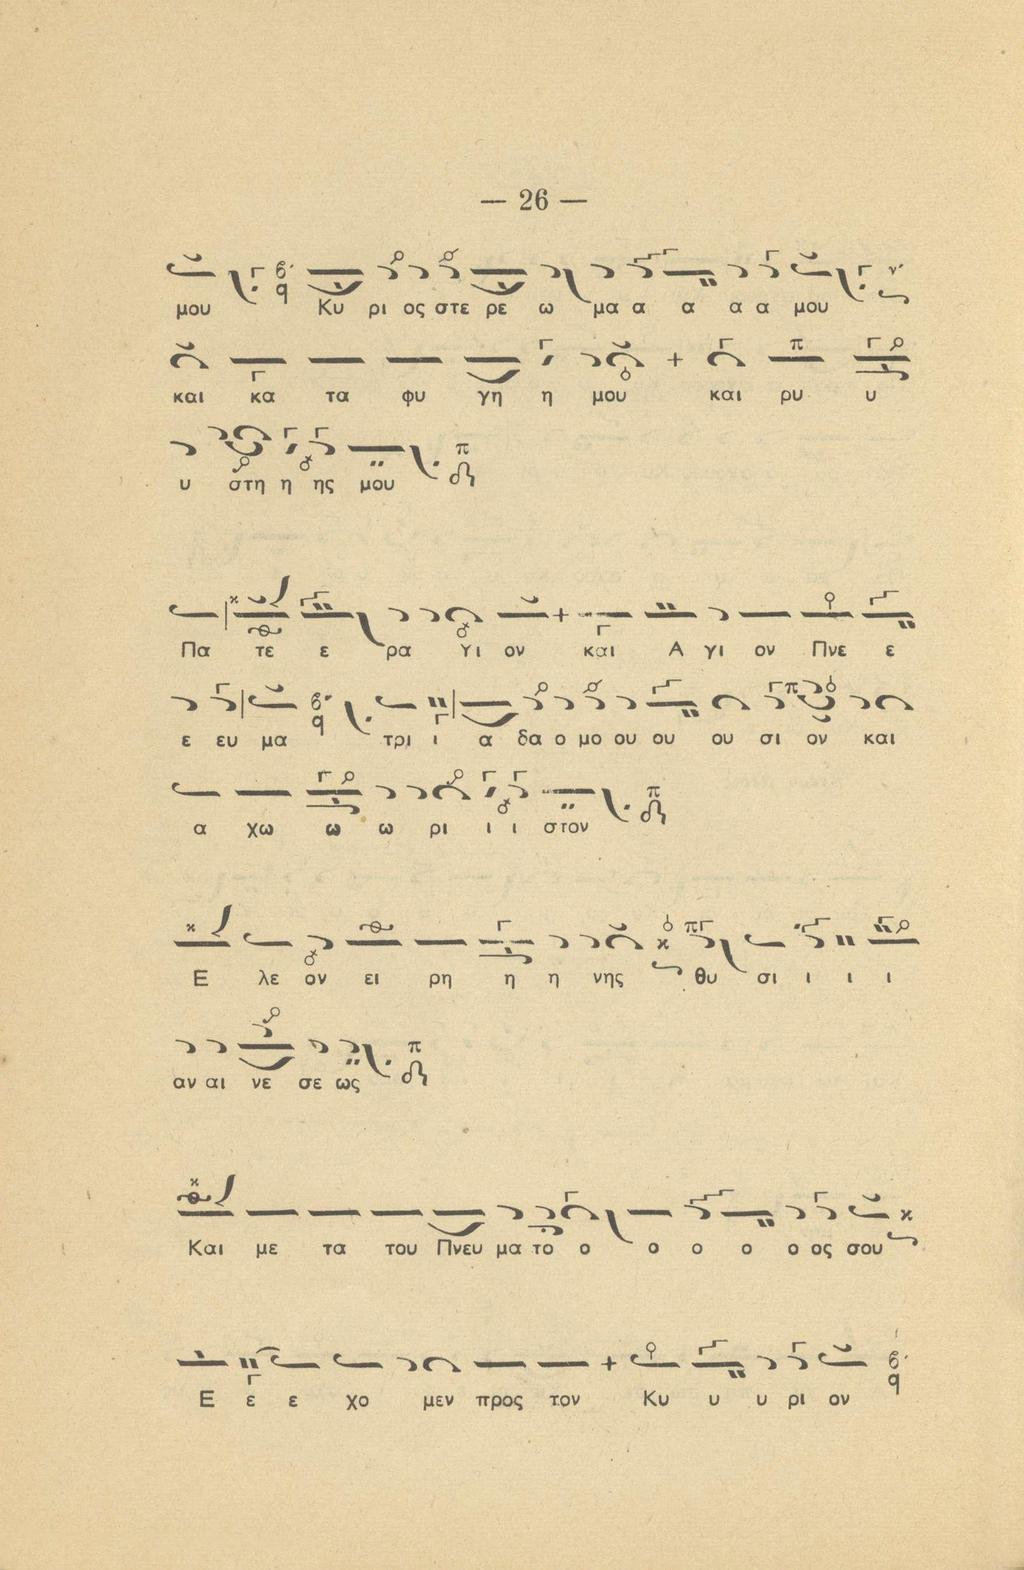 — 26 —
μου Κυ ρι ος στε ρε ω μα α α α α μου
και κα τα φυ γη η μου και ρυ υ
υ στη η ης μου
Πα τε ε ρα Υι ον και Α γι ον Πνε ε
ε ευ μα τρι ι α δα ο μο ου ου ου σι ον και
α χω ω ω ρι ι ι στον
Ε λε ον ει ρη η η νης θυ σι ι ι ι
αν αι νε σε ως
Και με τα του Πνευ μα το ο ο ο ο ο ος σου
Ε ε ε χο μεν προς τον Κυ υ υ ρι ον